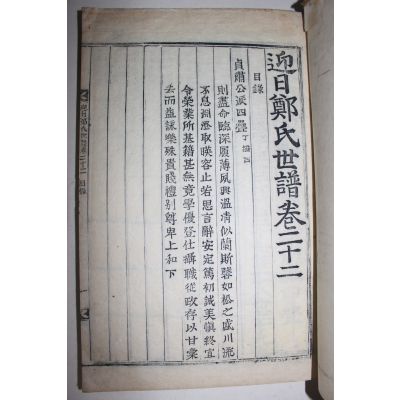 迎日鄭氏世譜卷二十二
目錄
貞肅公派四疊
則盡命臨深履薄夙興溫凊似蘭斯馨如松之盛川流
不息淵澄取暎容止若思言辭安定篤初誠美愼終宜
令榮業所基籍甚無竟學優登仕攝職從政存以甘棠
去而益詠樂殊貴賤禮別尊卑上和下
迎日鄭氏世譜卷二十二 目錄